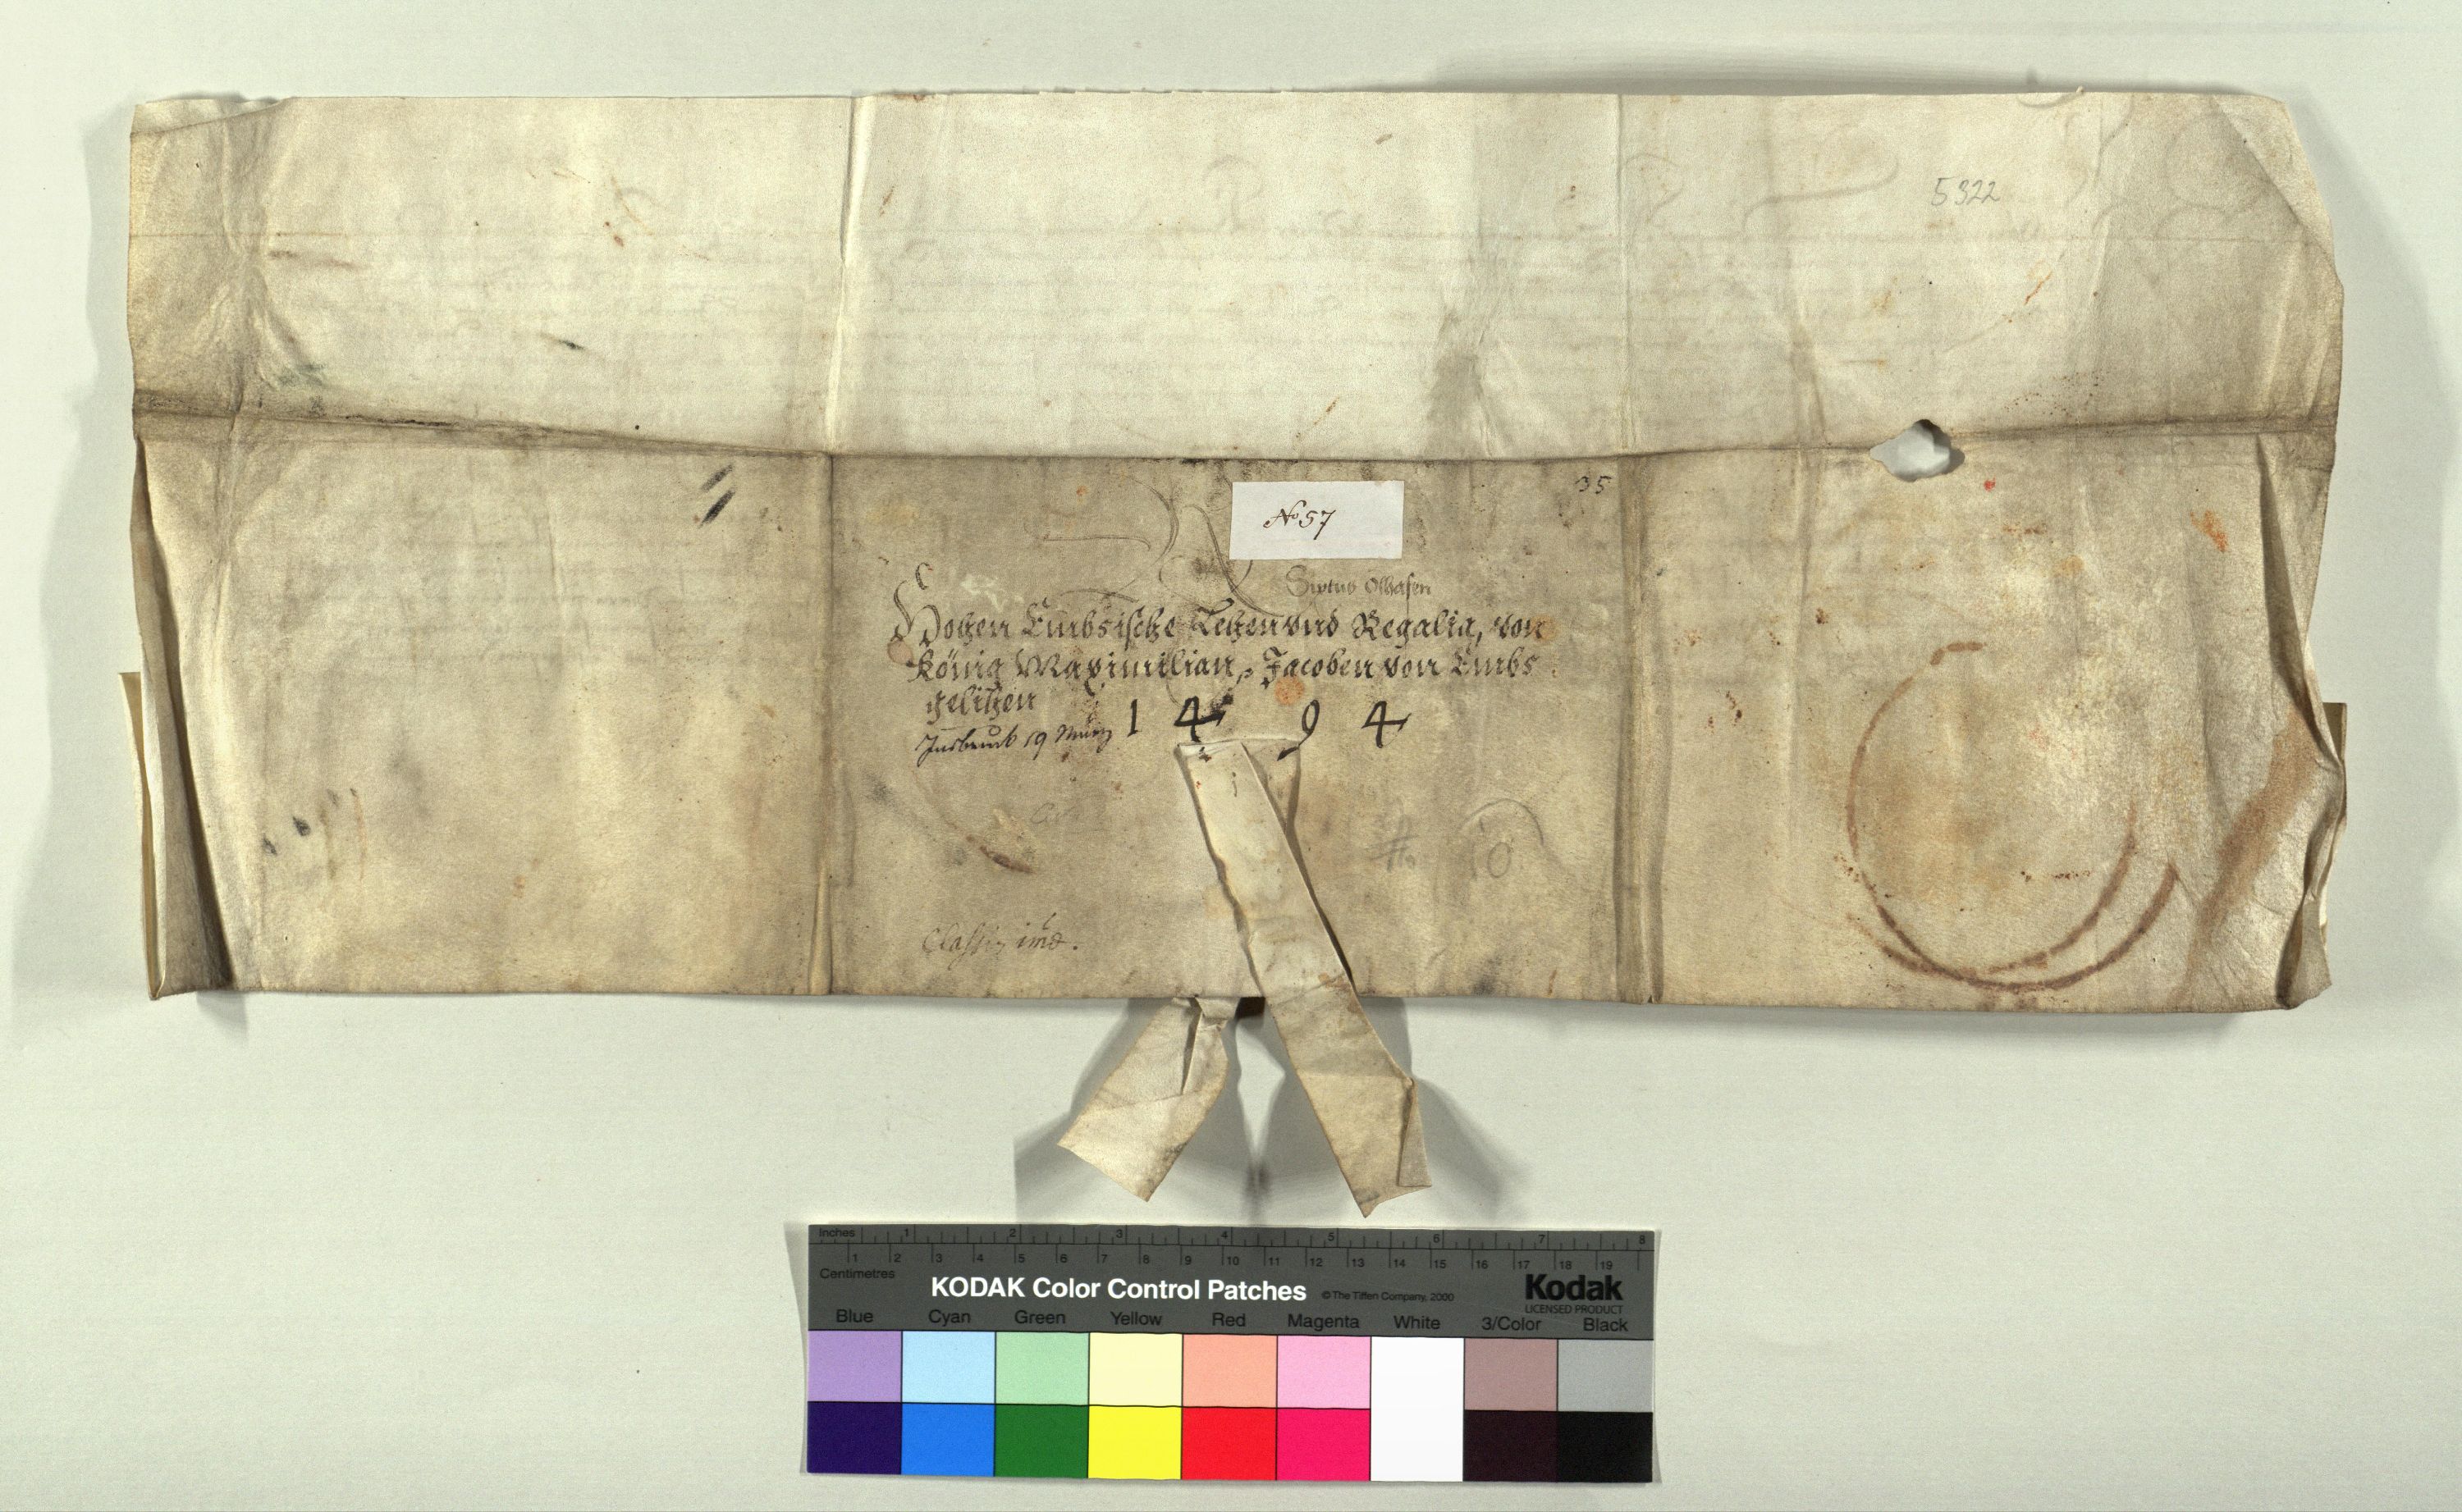 5322
35
No 57
Sixtus Olhafen
Hohen Embsische Lehen vnd Regalia, von
König Maximilian, Jacoben von Embs
gelihen
1 4 9 4
Insbruck 19 März
#. 10
Classis imae.
Inches 1 2 3 4 5 6 7 8
1 2 3 4 5 6 7 8 9 10 11 12 13 14 15 16 17 18 19
Centimetres
KODAK Color Control Patches ©The Tiffen Company, 2000 Kodak
LICENSED PRODUCT
Blue Cyan Green Yellow Red Magenta White 3/Color Black